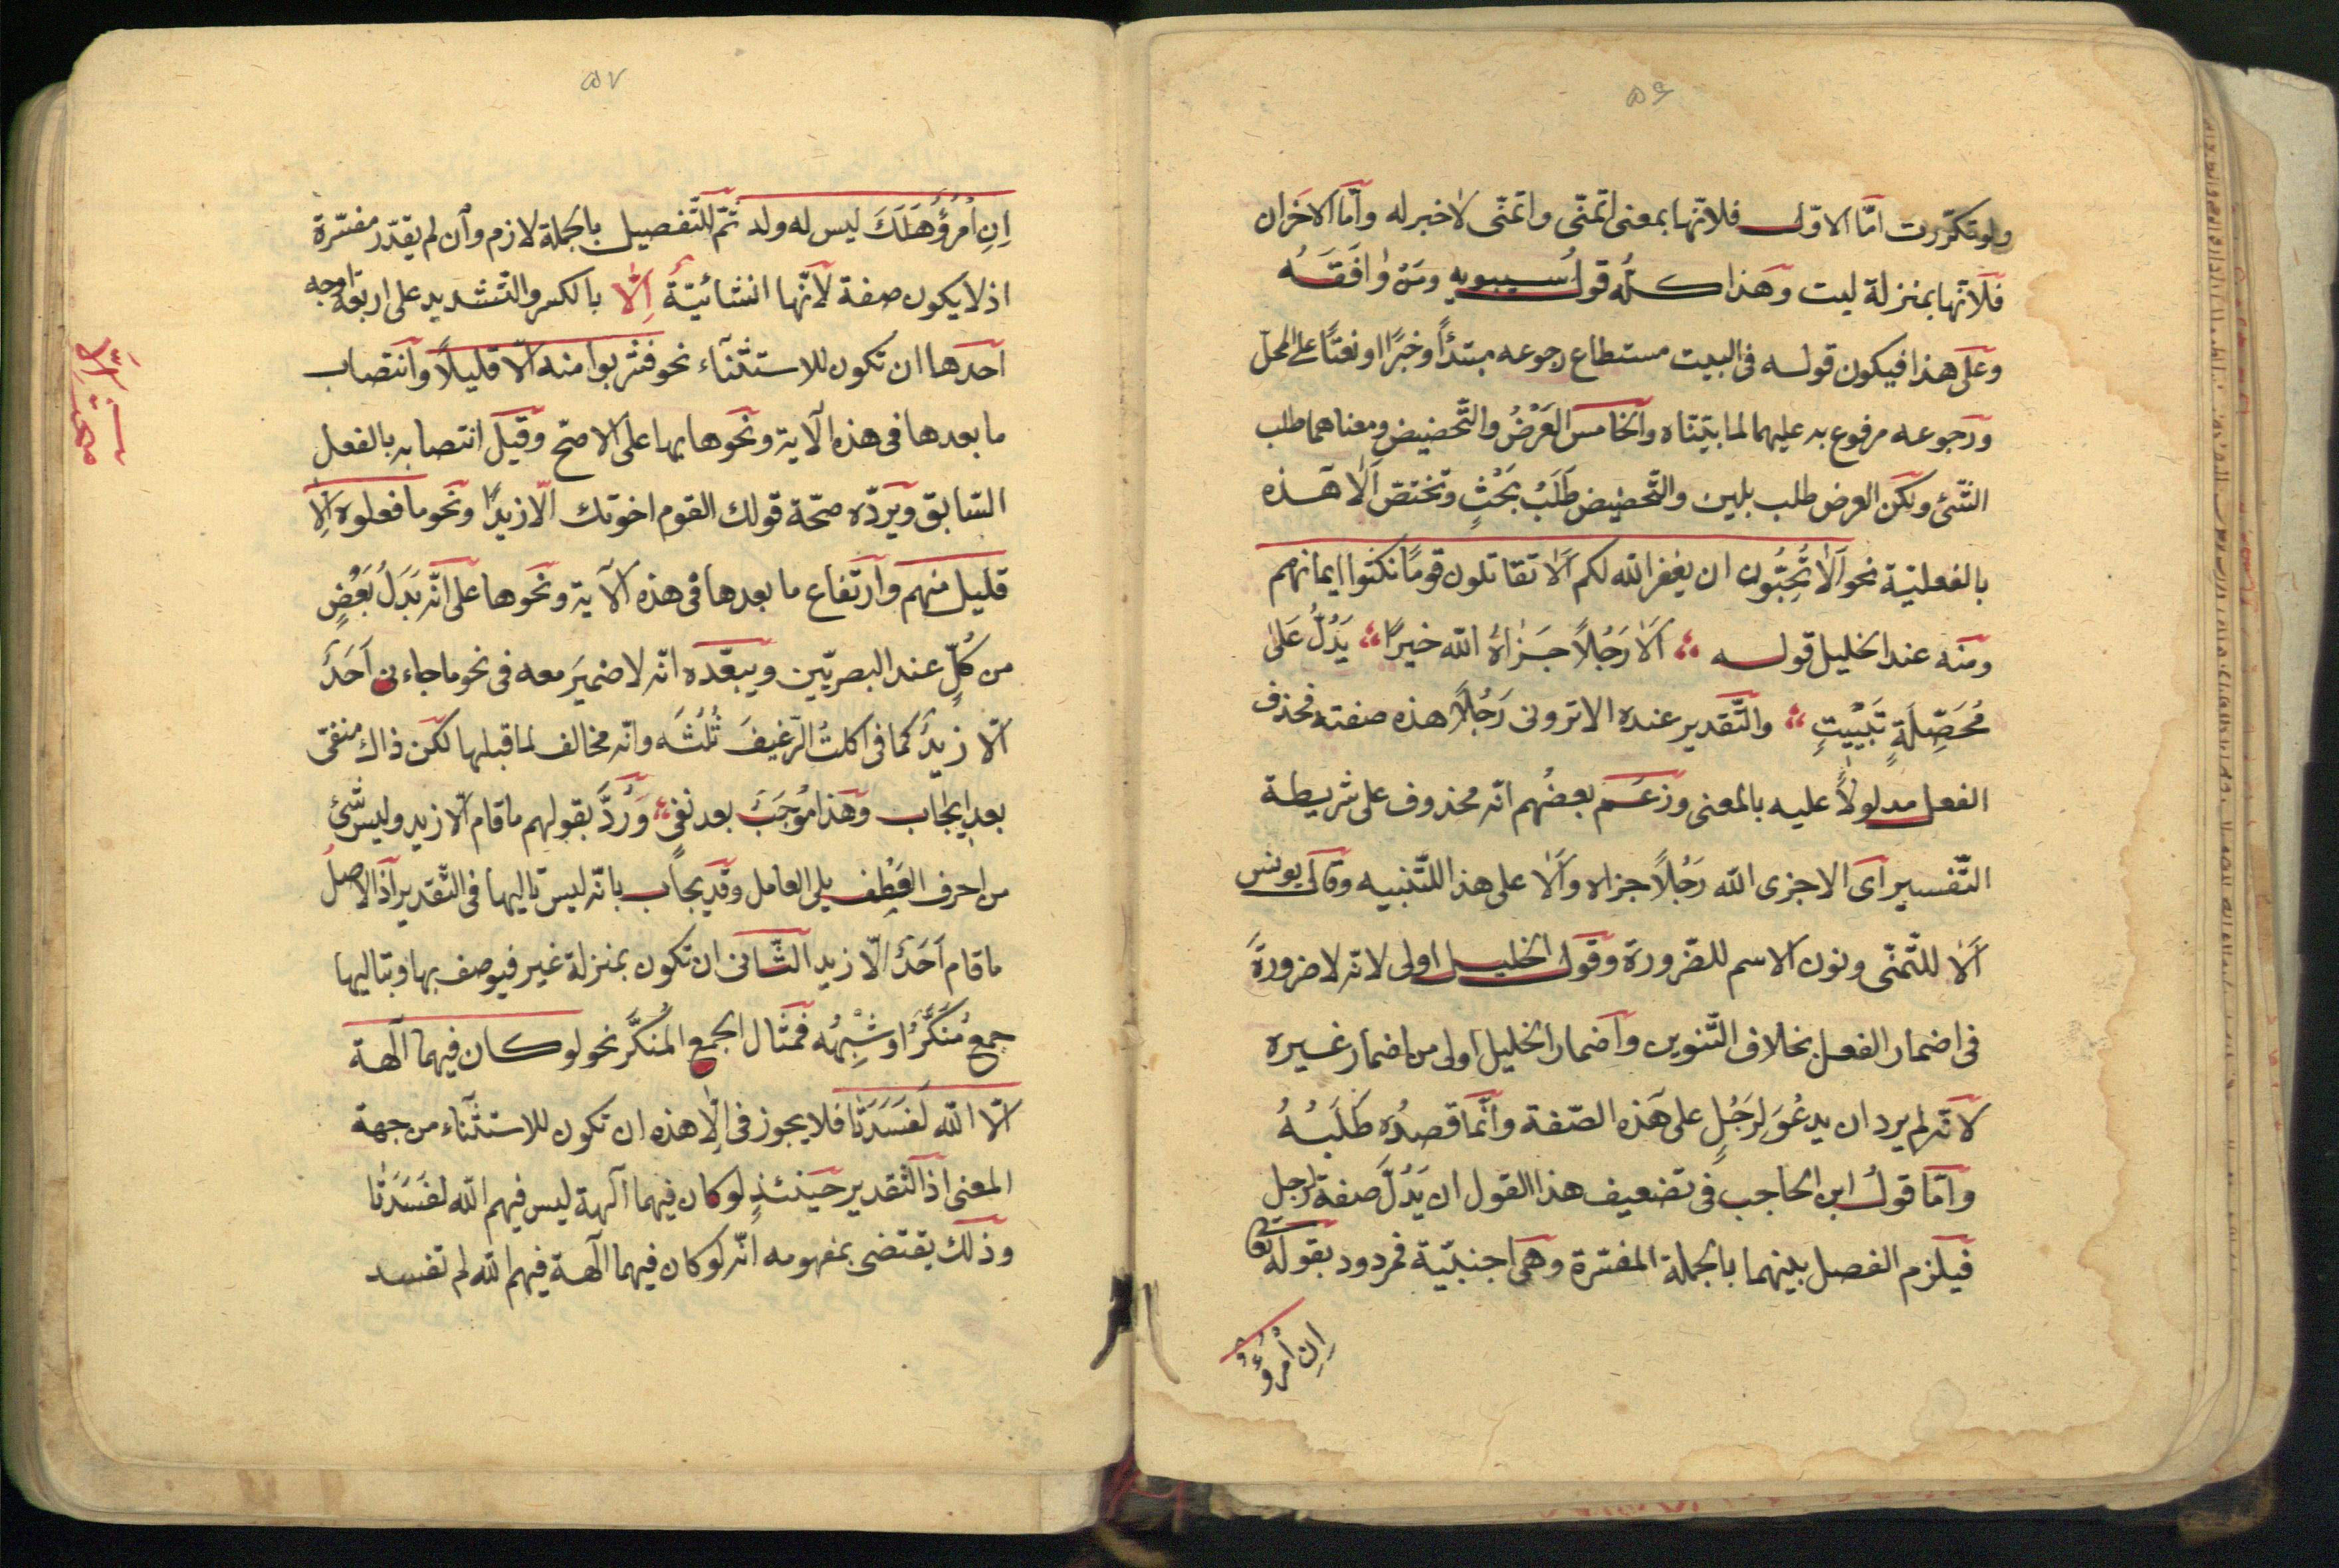 ۵۶
ولو تكرّرت امّا الاوّل فلانّها بمعنى اتمنّى واتمنّى لا خبر له وامّا الاخران
فلانّها بمنزلة ليت وهذا كلّه قول سيبويه ومن وافقه
وعلى هذا فيكون قوله فى البيت مستطاع رجوعه مبتدأً وخبرًا او نعتًا على المحلّ
ورجوعه مرفوع به عليهما لما بيّنّاه والخامس العَرْضُ والتّحضيض ومعناهما طلب
الشّئ ولكن العرض طلب بلين والتّحضيض طَلَبٌ بحَثٍّ وتختصّ اَلا هذه
بالفعليّة نحو اَلا تُحِبُّون ان يغفر الله لكم اَلا تقاتلون قومًا نكثوا ايمانهم
ومنه عند الخليل قوله اَلا رَجُلاً جَزاهُ الله خيرًا يَدُلُّ عَلى
مُحَصِّلَةٍ تَبيتِ والتّقدير عنده الا ترونى رَجُلاً هذه صفته فحذف
الفعل مدلولاً عليه بالمعنى وزعم بعضُهم انّه محذوف على شريطة
التّفسير اى الا جزى الله رَجُلاً جزاه واَلا على هذا للتّنبيه وقال يونس
اَلا للتّمنّى ونون الاسم للضّرورة وقول الخليل اولى لانّه لا ضرورةَ
فى اضمار الفعل بخلاف التّنوين واضمار الخليل اولى من اضمار غيره
لانّه لم يرد ان يدعُوَ لرَجُلٍ على هذه الصّفة وانّما قصدُه طَلَبُهُ
وامّا قولُ ابن الحاجب فى تضعيف هذا القول ان يَدُلّ صفة لرجل
فيلزم الفصل بينهما بالجملة المفسّرة وهى اجنبيّة فمردود بقوله تعا
اِنِ امْرُؤٌ
۵۷
اِنِ امْرُؤٌ هَلَكَ ليس له ولد ثمّ الفصيل بالجملة لازم وان لم يقدّر مفسّرة
اذ لا يكون صفة لانّها انشائيّةٌ اِلّا بالكسر والتّشديد على اربعة اوجه
احدها ان تكون للاستثناء نحو فشربوا منه الّا قليلاً وانتصاب
ما بعدها فى هذه الآية ونحوها بها على الاصحّ وقيل انتصابه بالفعل
السّابق ويردّه صحّة قولك القوم اخوتك الّا زيدًا ونحو ما فعلوه الا
قليل منهم وارتفاع ما بعدها فى هذه الآية ونحوها على انّه بَدَلُ بَعْضٍ
من كُلٍّ عند البصريّين ويبعّده انّه لا ضميرَ معه فى نحو ما جاءنى اَحَدٌ
الّا زيدٌ كما فى اكلتُ الرّغيفَ ثُلُثَه وانّه مخالف لما قبلها لكن ذاك منفىّ
بعد ايجاب وهذا مُوجَبٌ بعد نفى وَرُدَّ بقولهم ما قام الّا زيد وليس شئ
من احرف العَطف يلى العامل وقد يجاب بانّه ليس تاليها فى التّقدير اذ الاصل
ما قام اَحَدٌ الّا زيد الثّانى ان تكون بمنزلة غير فيوصف بها وبتاليها
جمعٌ مُنَكَّرٌ او شِبْهُه فمثال الجمع المُنَكَّر نحو لو كان فيهما آلهة
الّا الله لَفَسَدَتا فلا يجوز فى اِلّا هذه ان تكون للاستثناء من جهة
المعنى اذ التّقدير حينئذٍ لو كان فيهما آلهة ليس فيهم الله لفَسَدَتا
وذلك يقتضى بمفهومه انّه لو كان فيهما آلهة فيهم الله لم تفسد
مبحث اِلّا